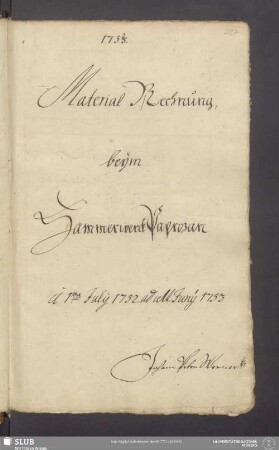 1753.
Material Rechnung,
beÿm
Hammerwerk Paprozan
à 1ma July 1752 ad ult. Junÿ 1753
Johann
SLUB